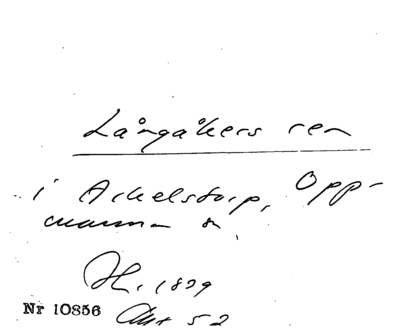 Långåkers ren
i Arkelstorp, Opp-
manna sn.
H. 1829
Nr 10856
Akt 52